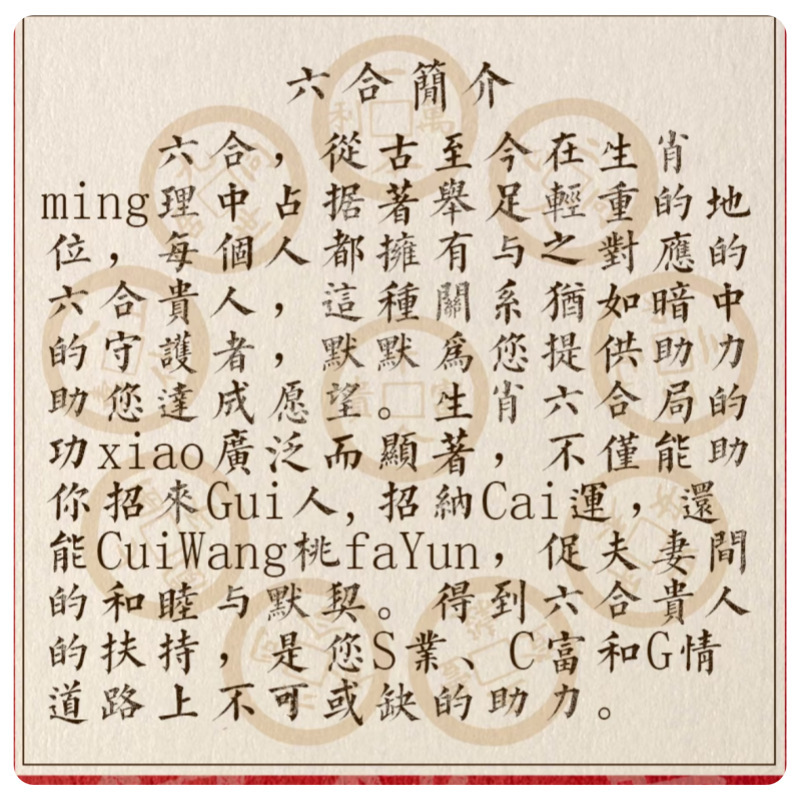 六合簡介
六合，從古至今在生肖
ming理中占据著舉足輕重的地
位，每個人都擁有与之對應的
六合貴人，這種關系猶如暗中
的守護者，默默爲您提供助力
助您達成愿望。生肖六合局的
功xiao廣泛而顯著，不僅能助
你招來Gui人,招納Cai運，還
能CuiWang桃faYun，促夫妻間
的和睦与默契。得到六合貴人
的扶持，是您S業、C富和G情
道路上不可或缺的助力。